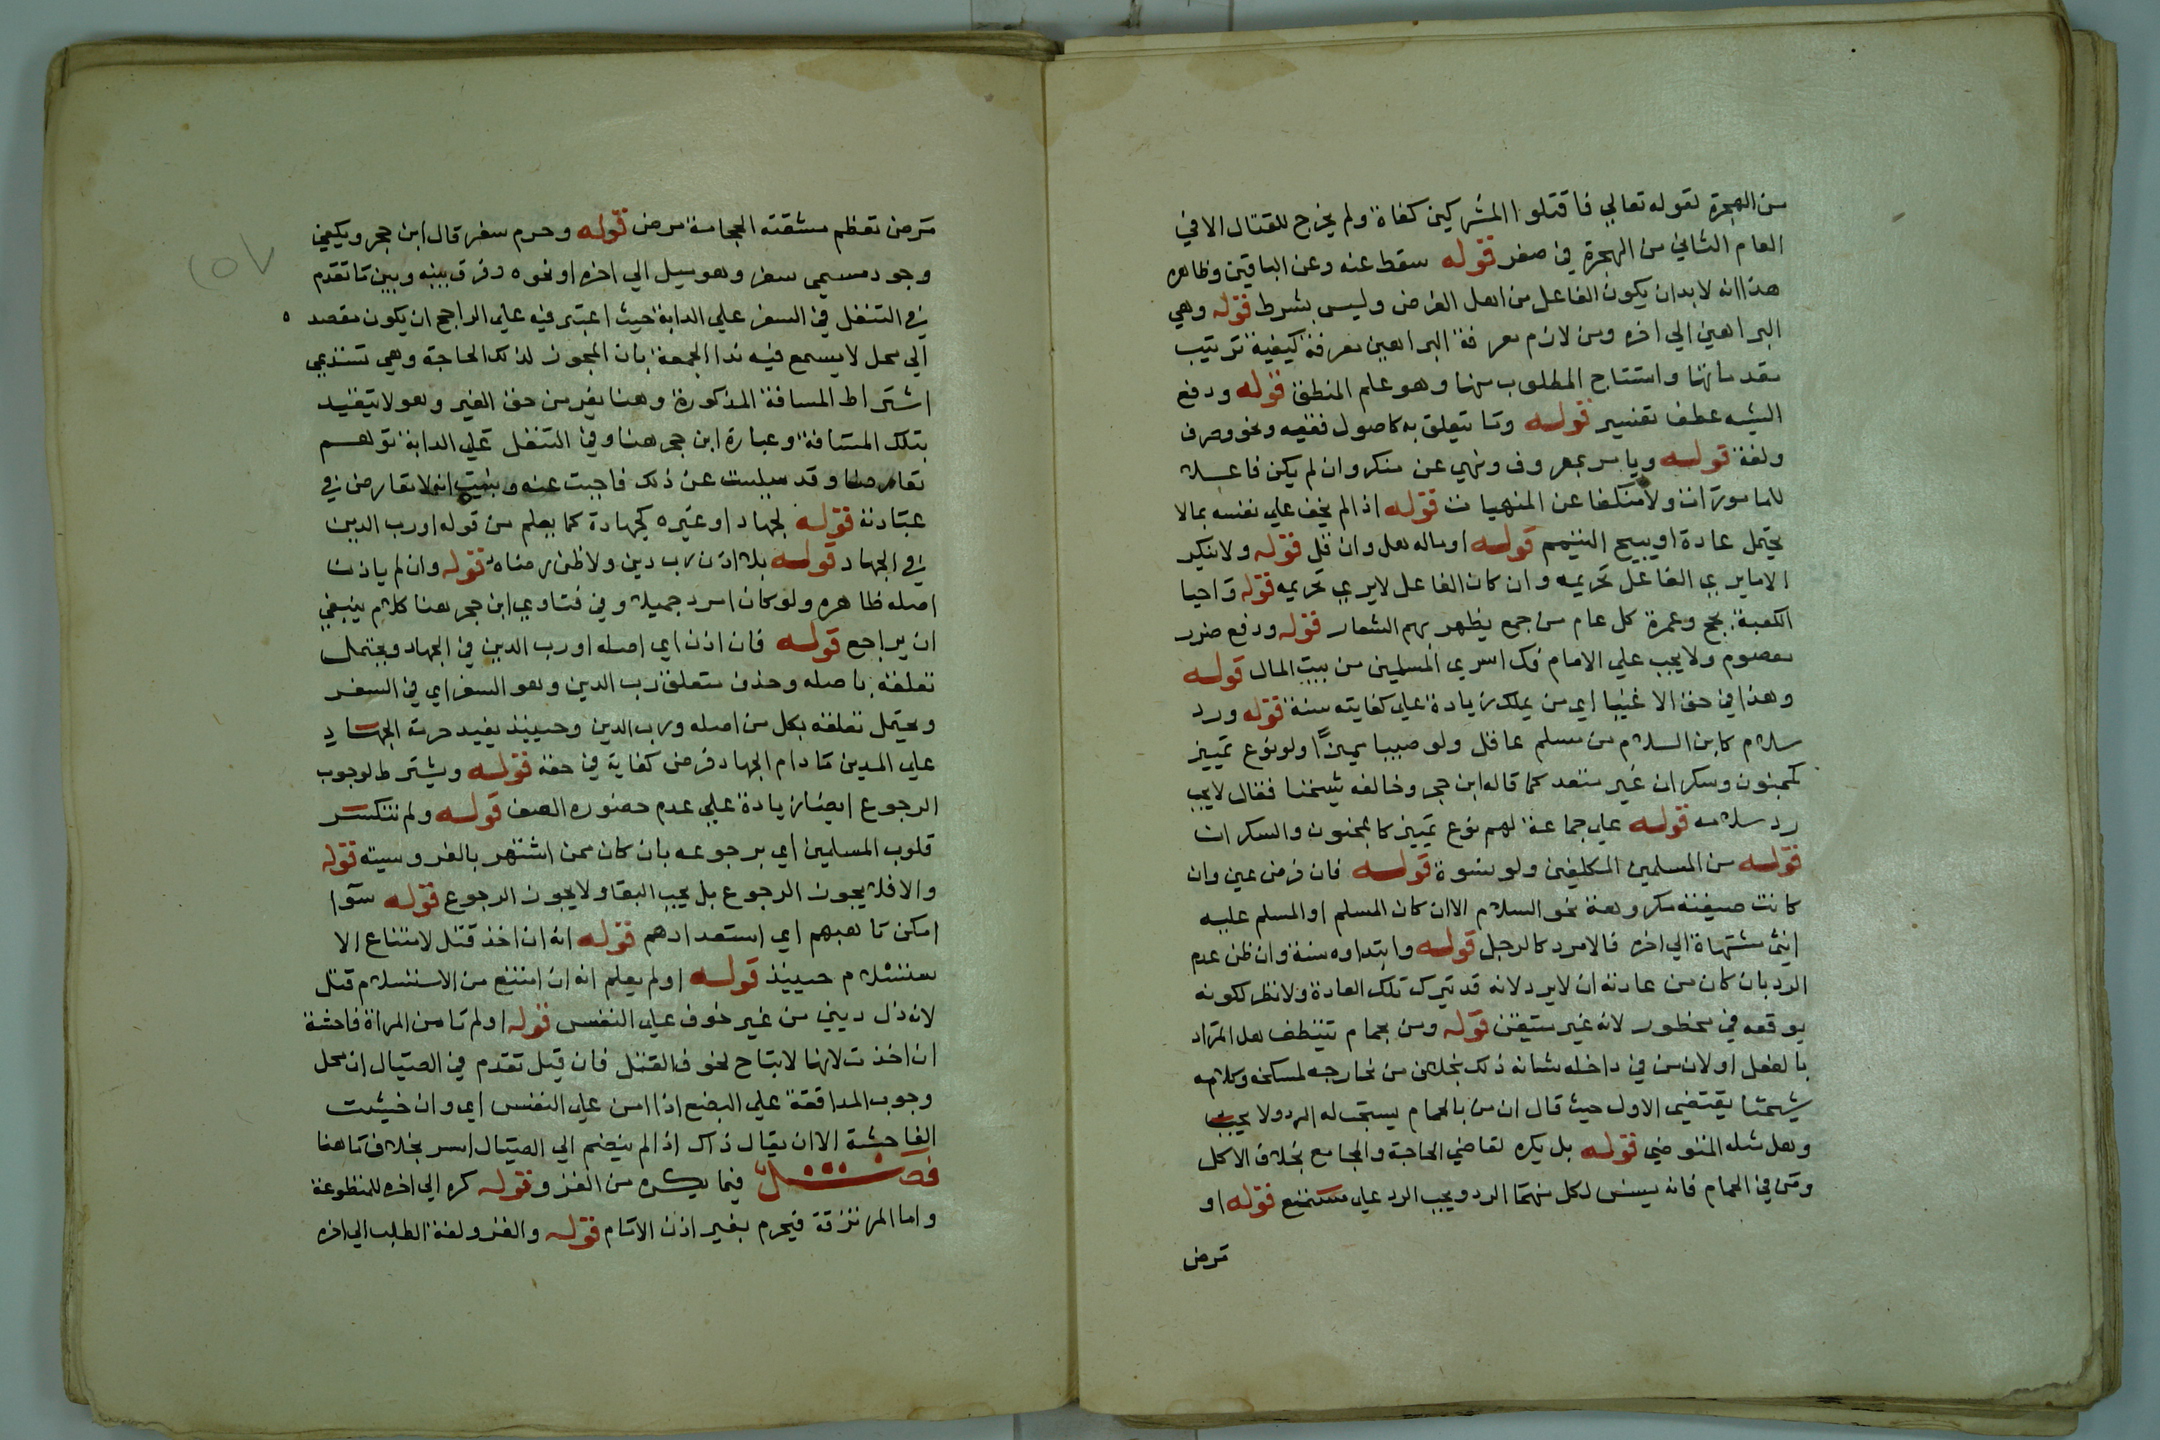 من الهجرة لقوله تعالي فاقتلوا المشركين كفاة ولم يخرج للقتال الا في
العام الثاني من الهجرة في صفر قوله سقط عنه وعن الباقين وظاهره
هذا انه لابد ان يكون الفاعل من اهل الفرض وليس بشرط قوله وهي
البراهين الي اخره ومن لازم معرفة البراهين معرفة كيفية ترتيب
مقدماتها واستنتاج المطلوب منها وهو علم المنطق قوله ودفع
الشبه عطف تفسير قوله وما يتعلق به كاصول فقه ونحو وصرف
ولغة قوله ويامر بمعروف ونهي عن منكر وان لم يكن فاعلا
للمامورات ولا منكفا عن المنهيات قوله اذا لم يخف علي نفسه بما لا
يحتمل عادة او يبيح التيمم قوله او ماله هل وان قل قوله ولا ينكر
الا ما يري الفاعل تحريمه وان كان الفاعل لا يري تحريمه قوله واحيا
الكعبة بحج وعمرة كل عام من جمع يظهر بهم الشعار قوله ودفع ضرر
معصوم ولا يجب علي الامام فك اسري المسلمين من بيت المال قوله
وهذا في حق الاغنيا اي من يملك زيادة علي كفايته سنة قوله ورد
سلام كابن السلام من مسلم عاقل ولو صبيا مميزا ولو نوع تمييز
كمجنون وسكران غير متعد كما قاله ابن حجر وخالفه شيخنا فقال لا يجب
رد سلامه قوله علي جماعة لهم نوع تمييز كالمجنون والسكران
قوله من المسلمين المكلفين ولو نسوة قوله فان فرض عين وان
كانت صيغته مكروهة نحو السلام الا ان كان المسلم او المسلم عليه
انثي مشتهاة الي اخره فالامرد كالرجل قوله وابتداوه سنة وان ظن عدم
الرد بان كان من عادته ان لا يرد لانه قد تترك تلك العادة ولا نظر لكونه
يوقعه في محظور لانه غير متيقن قوله ومن بحمام تنظف هل المراد
بالفعل او لان من في داخله شانه ذلك بخلاف من خارجه لمسكنه وكلام
شيخنا يقتضي الاول حيث قال ان من بالحمام يستحب له الرد ولا يجب
وهل مثله المتوضي قوله بل يكره لقاضي الحاجة والجامع بخلاف الاكل
ومن في الحمام فانه يسن لكل منهما الرد ويجب الرد علي مستمع قوله او
مرض
مرض تعظم مشقته الحجامة مرض قوله وحرم سفر قال ابن حجر ويكفي
وجود مسمي سفر وهو ميل الي اخره او نحوه وفرق بينه وبين ما تقدم
في التنفل في السفر علي الدابة حيث اعتبر فيه علي الراجح ان يكون مقصده
الي محل لا يسمع فيه ندا الجمعة بان المجوز لذلك الحاجة وهي تستدعي
اشتراط المسافة المذكورة وهنا يفر من حق الغير وهو لا يتقيد
بتلك المسافة وعبارة ابن حجر هنا وفي التنفل علي الدابة توهم
تعارضا وقد سيلت عن ذلك فاجبت عنه انه لا تعارض في
عبارته قوله لجهاد او غيره كجهادة كما يعلم من قوله او رب الدين
في الجهاد قوله بلا اذن رب دين ولا ظن رضاه قوله وان لم ياذن
اصله ظاهره ولو كان امرد جميلا وفي فتاوي ابن حجر هنا كلام ينبغي
ان يراجع قوله فان اذن اي اصله او رب الدين في الجهاد ويحتمل
تعلقه باصله وحذف متعلق رب الدين وهو السفر اي في السفر
ويحتمل تعلقه بكل من اصله ورب الدين وحينيذ يفيد حرمة الجهاد
علي المدين ما دام الجهاد فرض كفاية في حقه قوله ويشترط لوجوب
الرجوع ايضا زيادة علي عدم حضوره الصف قوله ولم تنكسر
قلوب المسلمين اي برجوعه بان كان ممن اشتهر بالفروسية قوله
والا فلا يجوز الرجوع بل يجب البقا ولا يجوز الرجوع قوله سوا
امكن تاهبهم اي استعدادهم قوله انه ان اخذ قتل لامتناع الا
ستسلام حينيذ قوله او لم يعلم انه ان امتنع من الاستسلام قتل
لانه ذل ديني من غير خوف علي النفس قوله او لم تامن المراة فاحشة
ان اخذت لانها لا تباح لخوف القتل فان قيل تقدم في الصيال ان محل
وجوب المدافعة علي البضع اذا امن علي النفس اي وان خشيت
الفاحشة الا ان يقال ذاك اذا لم ينضم الي الصيال اسر بخلاف ما هنا
فصل فيما يكره من الغزو قوله كره الي اخره للمتطوعة
واما المرتزقة فيحرم بغير اذن الامام قوله والغزو لغة الطلب الي اخره